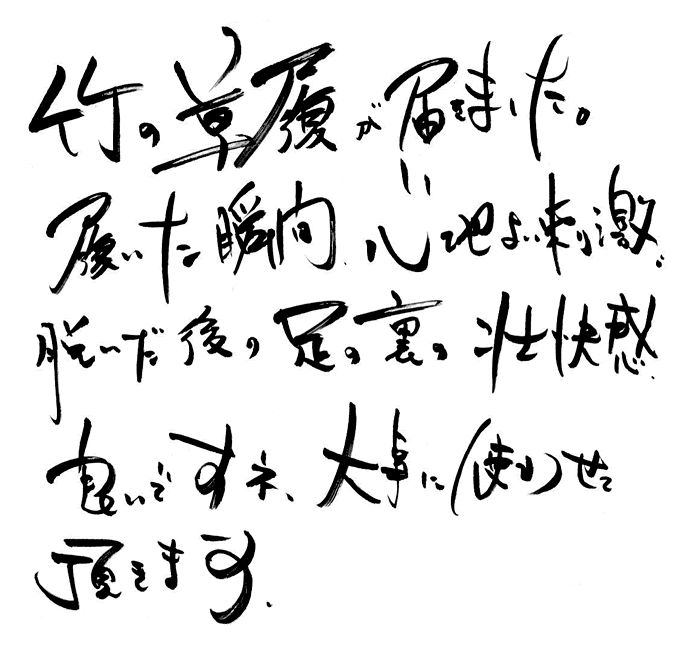 竹の草履が届きました。
履いた瞬間、心地よい刺激。
脱いだ後の足の裏の壮快感
良いですネ、大事に使わせて
頂きます。